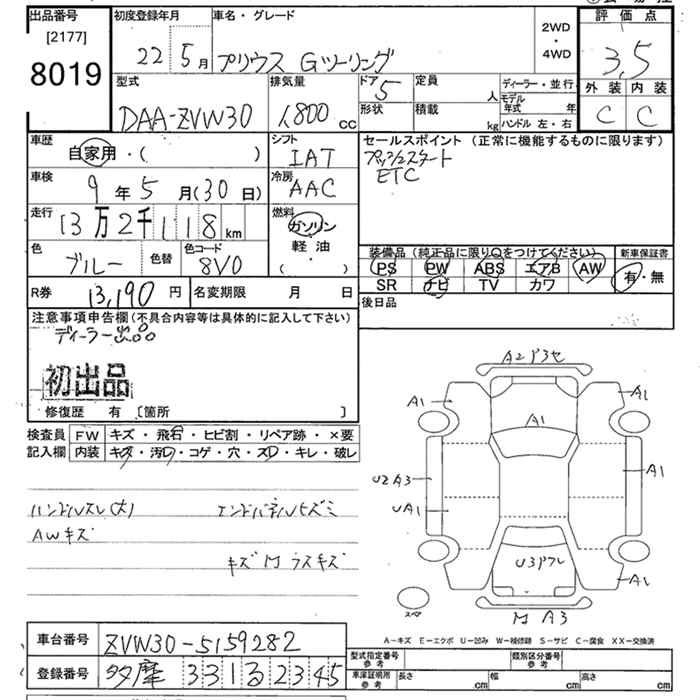 出品番号
[2177]
8019
初度登録年月
22 5月
車名・グレード
プリウス Gツーリング
2WD
・
4WD
評価点
3.5
外装 内装
C C
型式
DAA-ZVW30
排気量
1800 cc
ドア 5
形状
定員 人
積載 kg
ディーラー・並行
モデル年式 年
ハンドル 左・右
車歴
自家用・( )
シフト
IAT
セールスポイント(正常に機能するものに限ります)
プッシュスタート
ETC
車検
9年5月(30日)
冷房
AAC
走行
13万2千118km
燃料
ガソリン
軽油
・
( )
色
ブルー
色替
色コード
8V0
装備品(純正品に限り○をつけてください)
PS PW ABS エアB AW
SR ナビ TV カワ
新車保証書
有・無
R券 13,190円
名変期限 月 日
後日品
注意事項申告欄(不具合内容等は具体的に記入して下さい)
ディーラー出品
初出品
修復歴 有 〔箇所 〕
検査員 FW キズ・飛石・ヒビ割・リペア跡・×要
記入欄 内装 キズ・汚レ・コゲ・穴・スレ・キレ・破レ
ハンドルスレ(大) エンドパネルヒズミ
AWキズ
キズ M ウスキズ
A2 P3セ
A1 A1
A1
U2 A3 A1
UA1
U3 Pワレ
A1
スペア
M A3
A-キズ E-エクボ U-凹み W-補修跡 S-サビ C-腐食 XX-交換済
車台番号 ZVW30-5159282
登録番号 多摩 331 る 2345
型式指定番号
参考
類別区分番号
参考
車庫証明用
参考
長さ cm 幅 cm 高さ cm